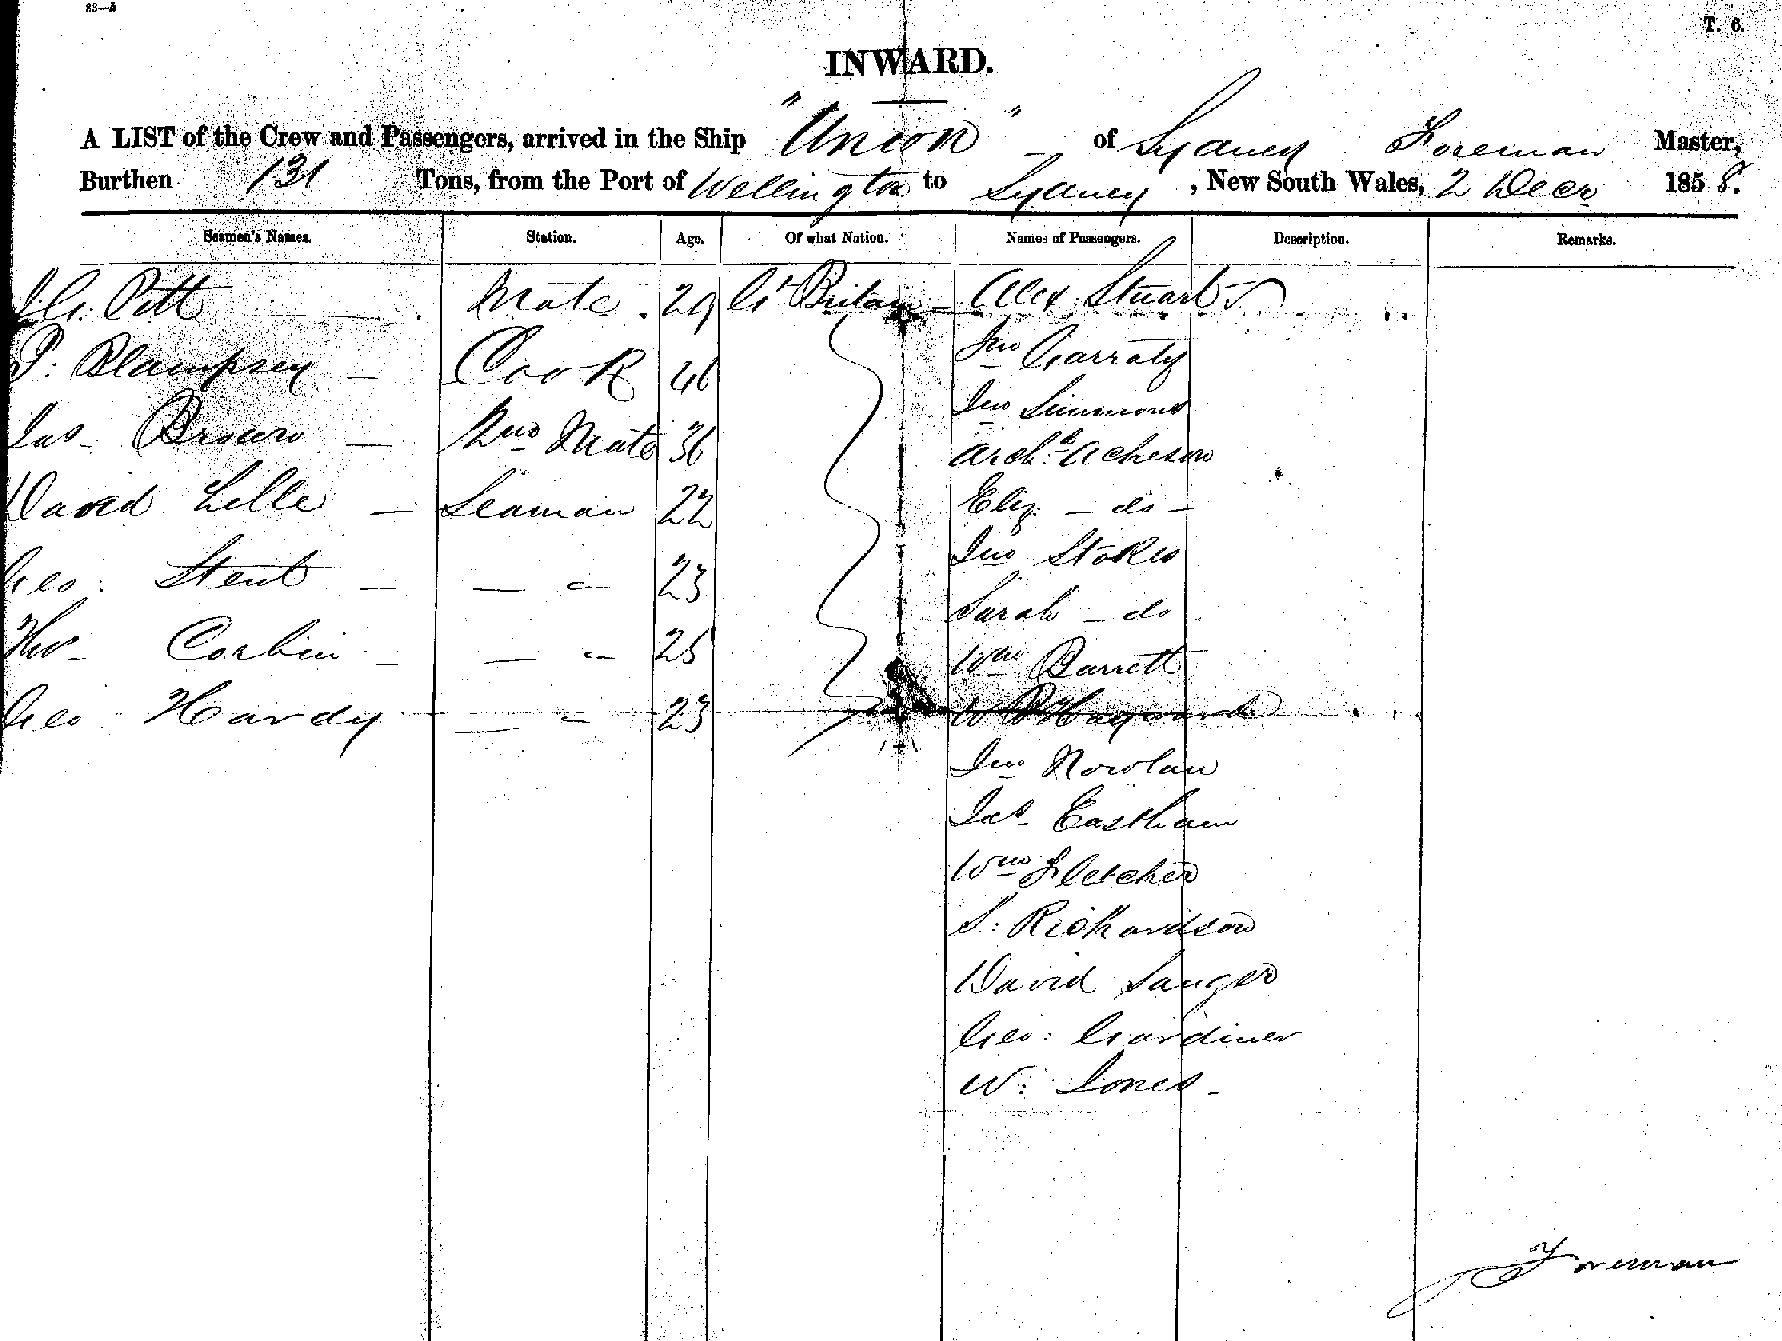 T. 6.
INWARD.
A LIST of the Crew and Passengers, arrived in the Ship "Union" of Sydney Foreman Master,
Burthen 131 Tons, from the Port of Wellington to Sydney, New South Wales, 2 Decr 1858.
Seamen's Names. Station. Age. Of what Nation. Names of Passengers. Description. Remarks.
Pitt Mate 29 Gt Britain Alex Stuart
Jno Garraty
P: Blampsey Cook 46
Jno Simmons
Jas Brown Mate 36
Archd Acheson
David Lille Seaman 22
Eliz - do -
Jno Stokes
Geo: Stent — " 23
Sarah - do
Corbin — " 25
Wm Barrett
Geo Hardy — " 23
W Hayward
Jno Nowlan
Jas Eastham
Wm Fletcher
S: Richardson
David Sanger
Geo: Gardiner
W: Jones
Foreman